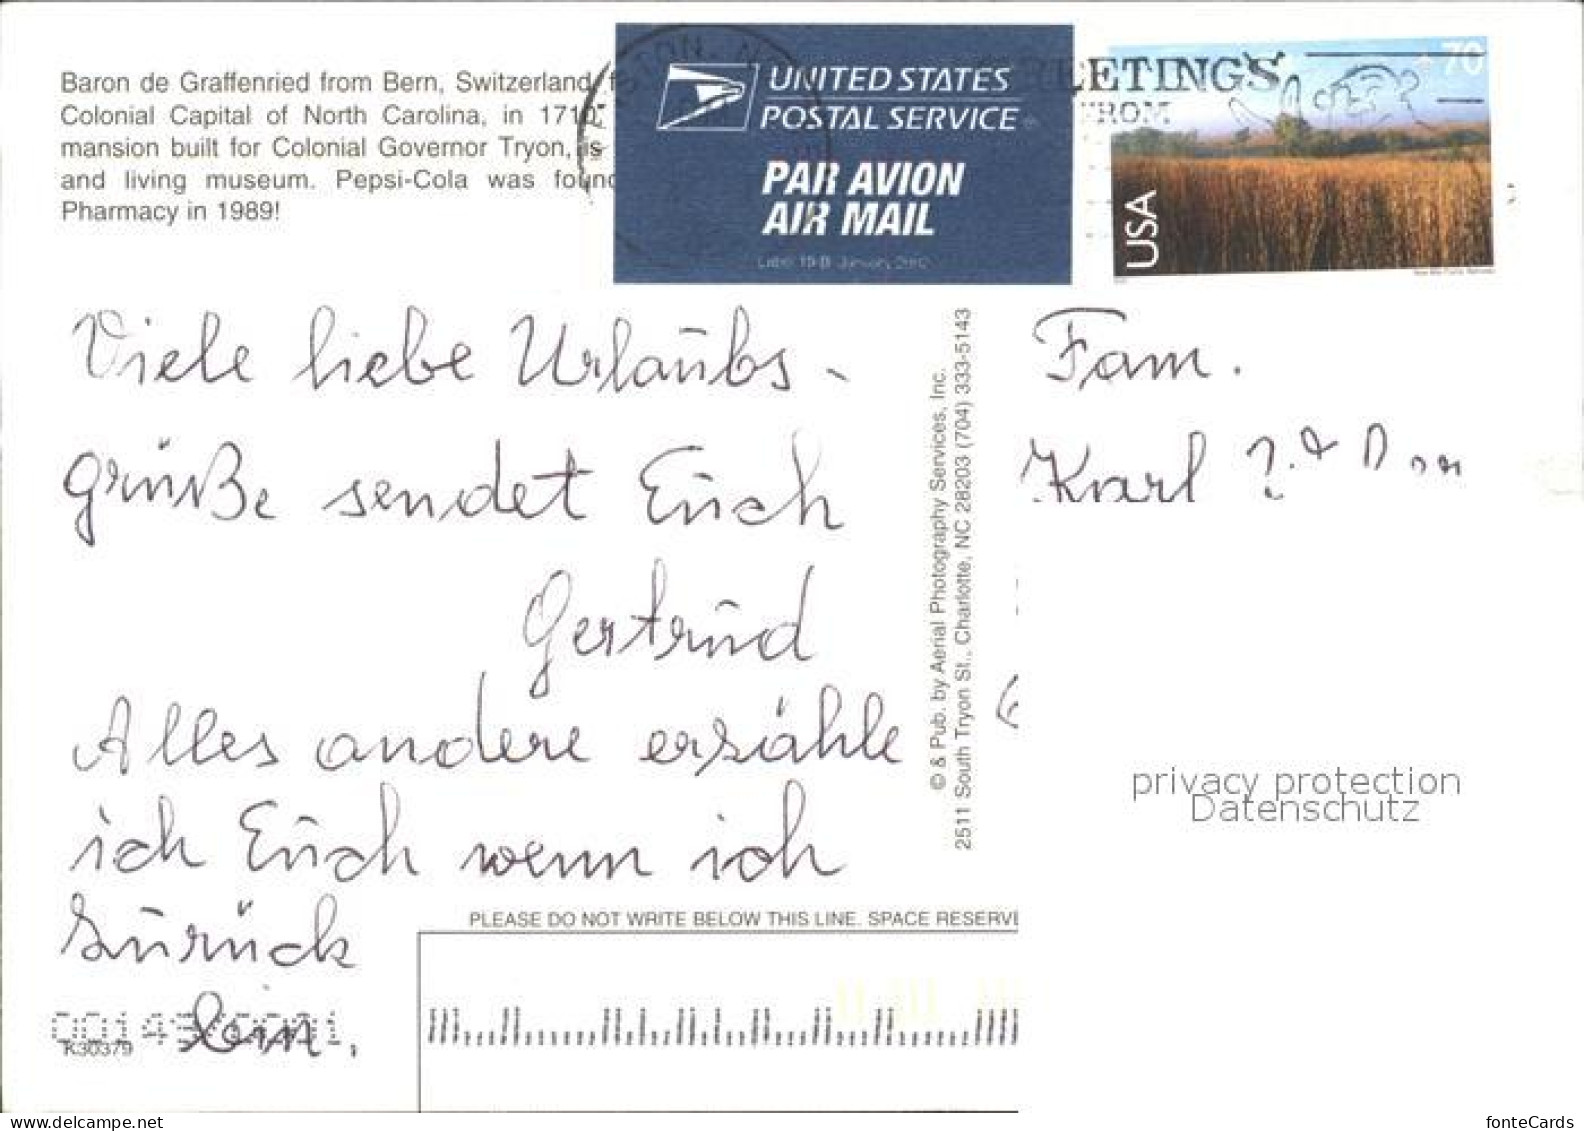 Baron de Graffenried from Bern, Switzerland,
Colonial Capital of North Carolina, in 1710,
mansion built for Colonial Governor Tryon, is
and living museum. Pepsi-Cola was found
Pharmacy in 1989!
UNITED STATES
POSTAL SERVICE
PAR AVION
AIR MAIL
Label 19-B January 2002
GREETINGS
FROM
70
USA
Viele liebe Urlaubs-
grüße sendet Euch
Gertrud
Alles andere erzähle
ich Euch wenn ich
zurück
bin.
K30379
© & Pub. by Aerial Photography Services, Inc.
2511 South Tryon St., Charlotte, NC 28203 (704) 333-5143
Fam.
Karl
privacy protection
Datenschutz
PLEASE DO NOT WRITE BELOW THIS LINE. SPACE RESERVE
fonteCards